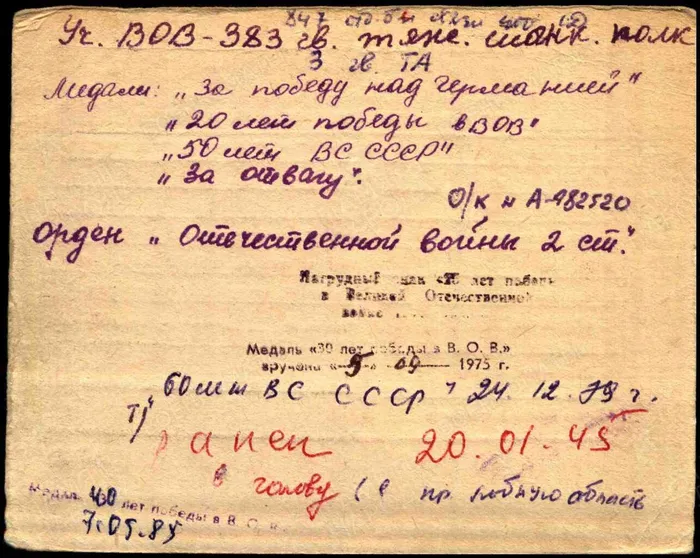 847 отд. б-н связи
Уч. ВОВ - 383 гв. тяж. танк. полк
3 гв. ТА
Медали: „За победу над Германией"
„20 лет победы в ВОВ"
„50 лет ВС СССР"
„За отвагу".
о/к н А-982520
Орден „Отечественной войны 2 ст."
Нагрудный знак «25 лет победы
в Великой Отечественной
войне
Медаль «30 лет победы в В. О. В.»
вручена « 5 » 09 1975 г.
„60 лет ВС СССР" 24.12.79 г.
ранен 20.01.45
в голову (в пр. лобную область
Медаль 40 лет победы в В. О. В.
7.05.85